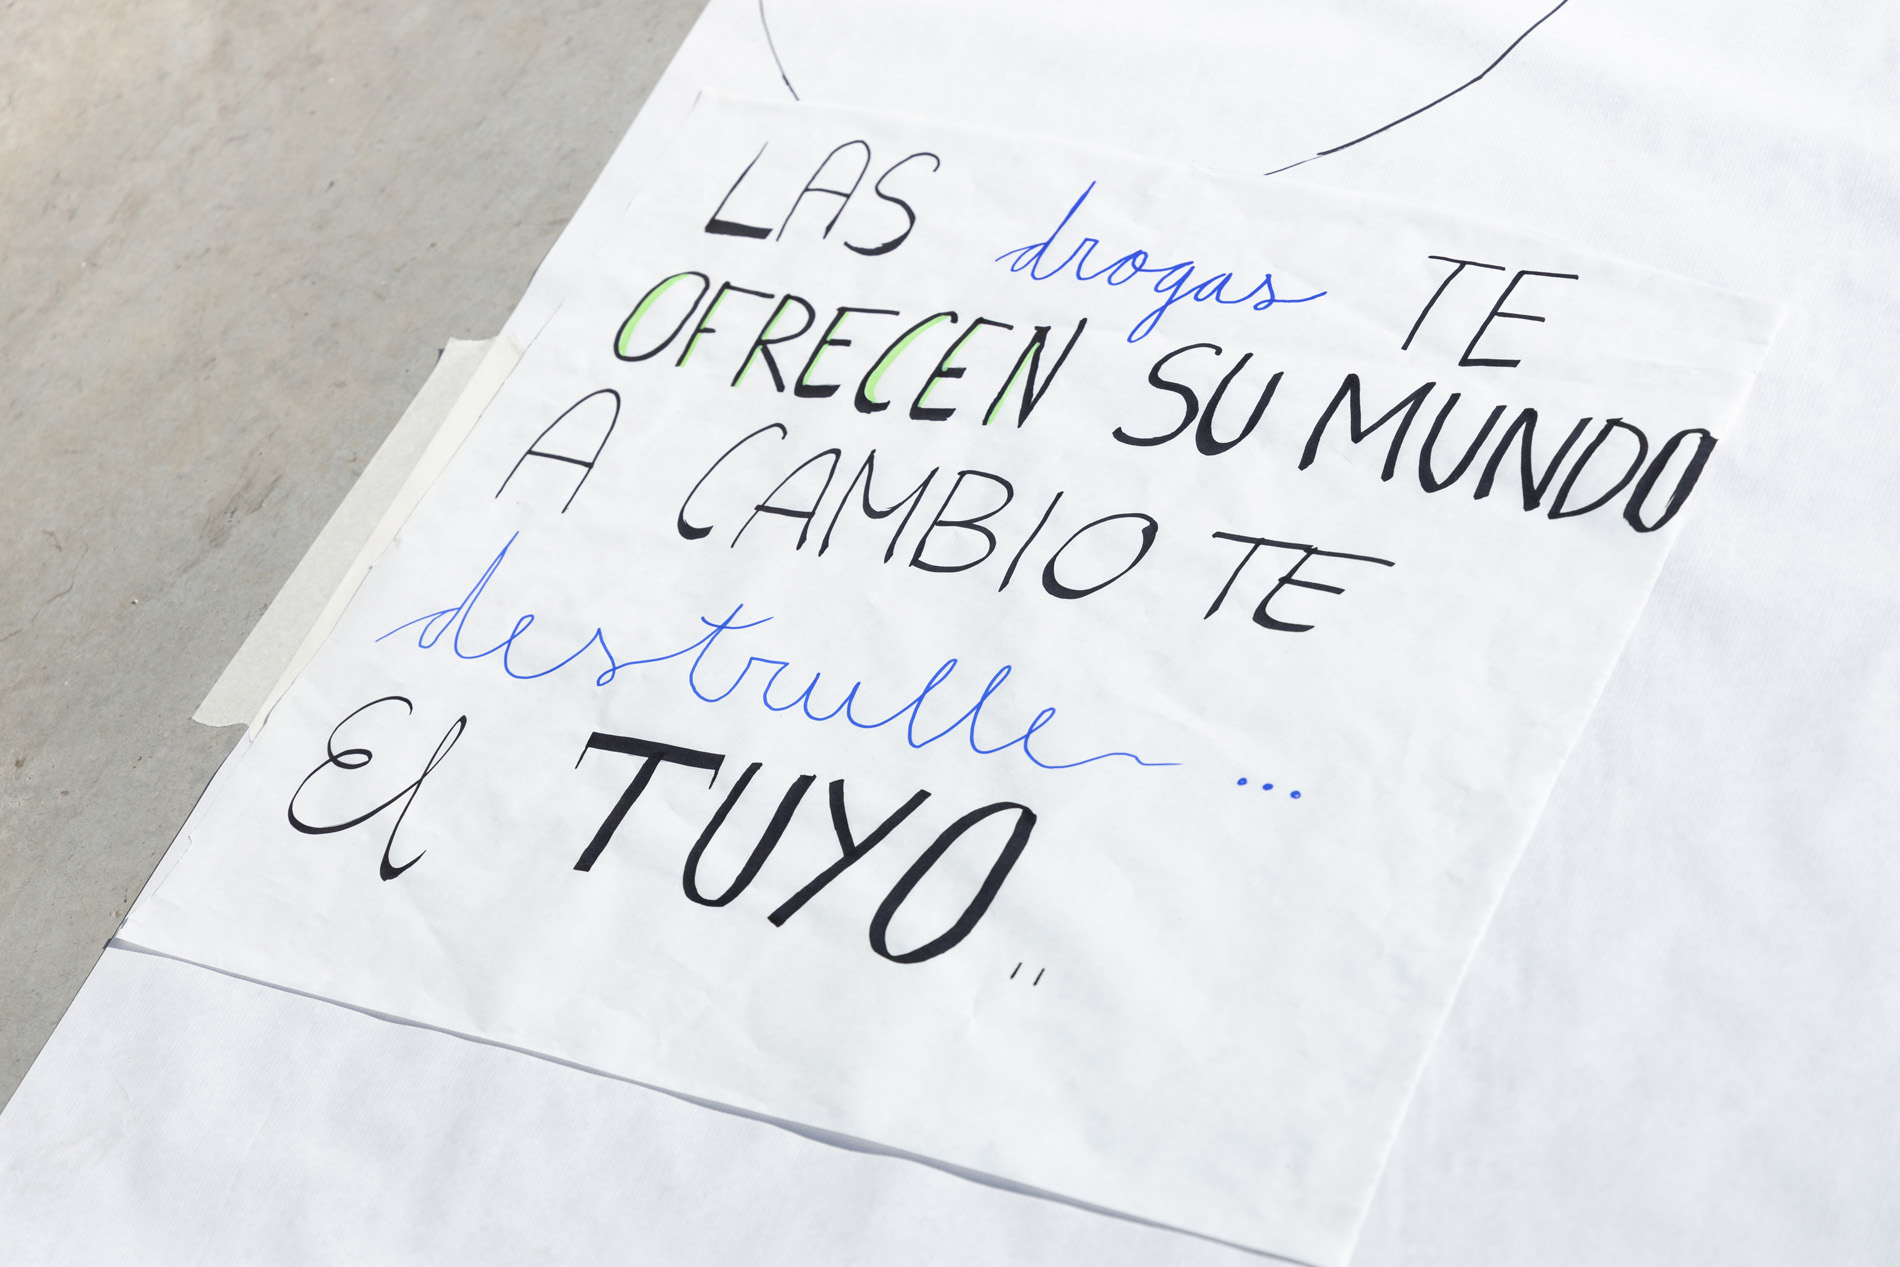 LAS drogas TE
OFRECEN SU MUNDO
A CAMBIO TE
destrulle...
El TUYO..